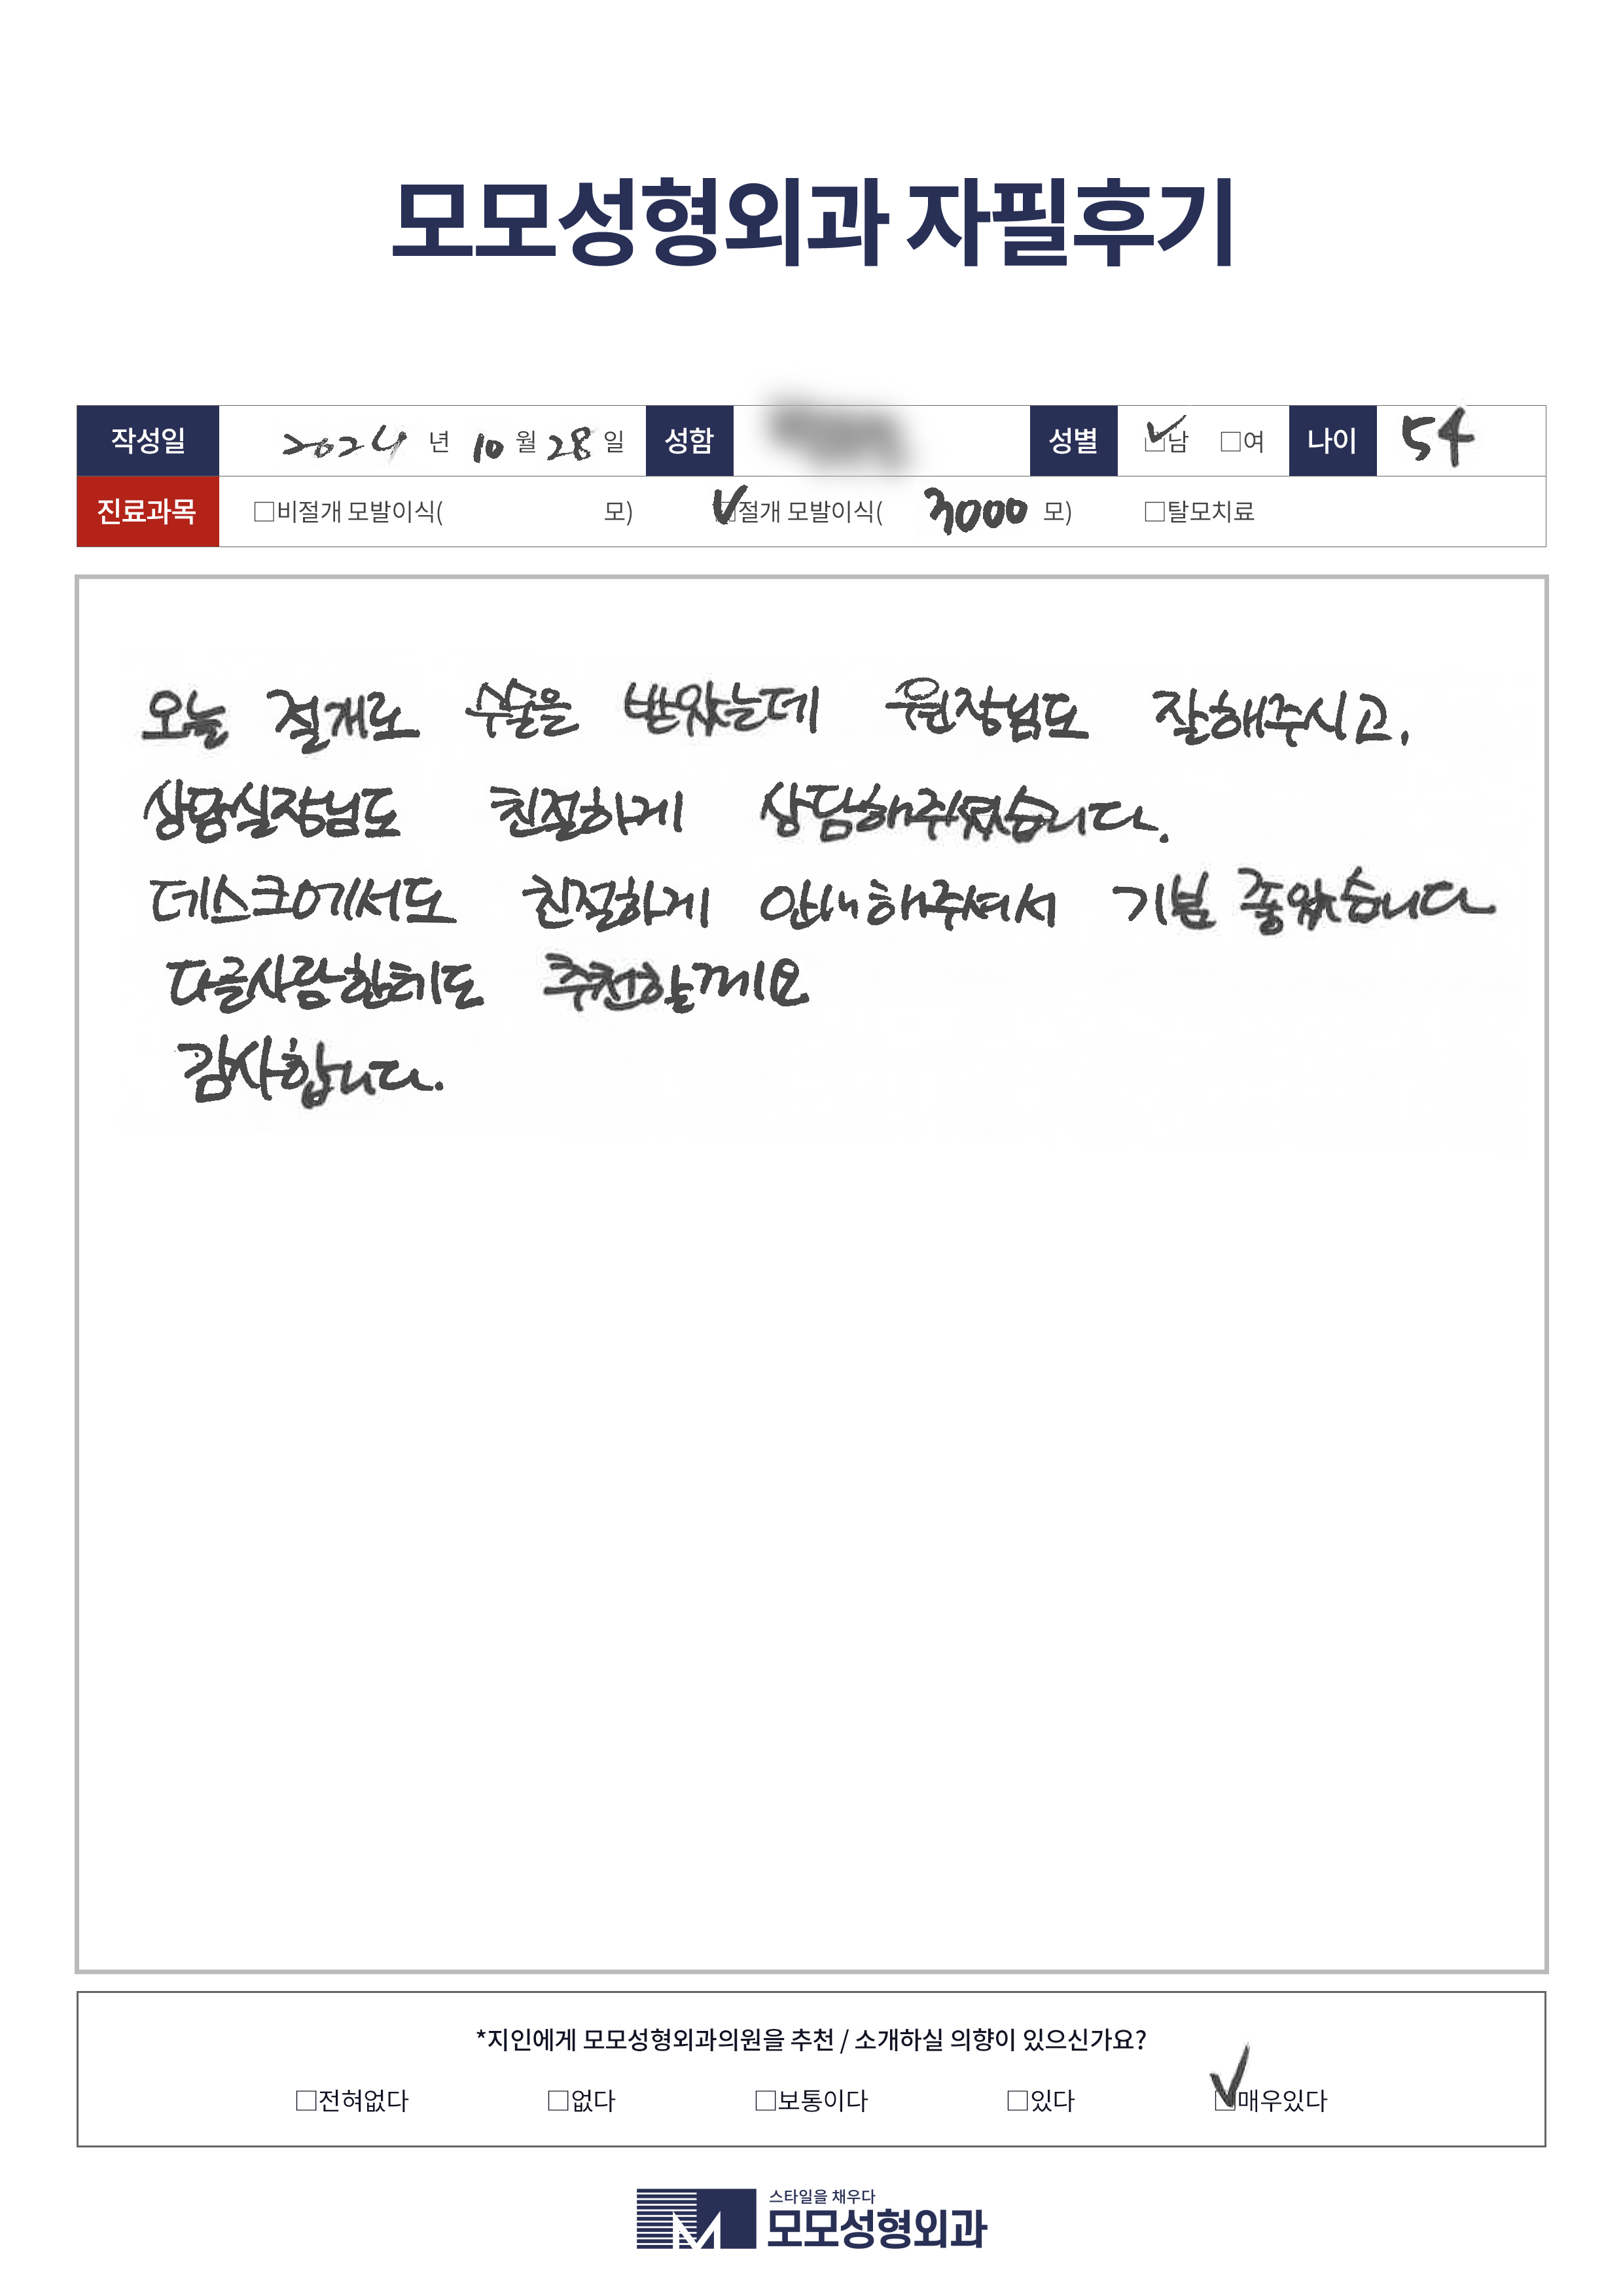 모모성형외과 자필후기
작성일 2024 년 10 월 28 일 성함 성별 ☑남 □여 나이 54
진료과목 □비절개 모발이식( 모) ☑절개 모발이식( 3000 모) □탈모치료
오늘 절개로 수술을 받았는데 원장님도 잘해주시고.
상담실장님도 친절하게 상담해주셨습니다.
데스크에서도 친절하게 안내해주셔서 기분 좋았습니다
다른사람한테도 추천할께요
감사합니다.
*지인에게 모모성형외과의원을 추천 / 소개하실 의향이 있으신가요?
□전혀없다 □없다 □보통이다 □있다 ☑매우있다
스타일을 채우다
모모성형외과